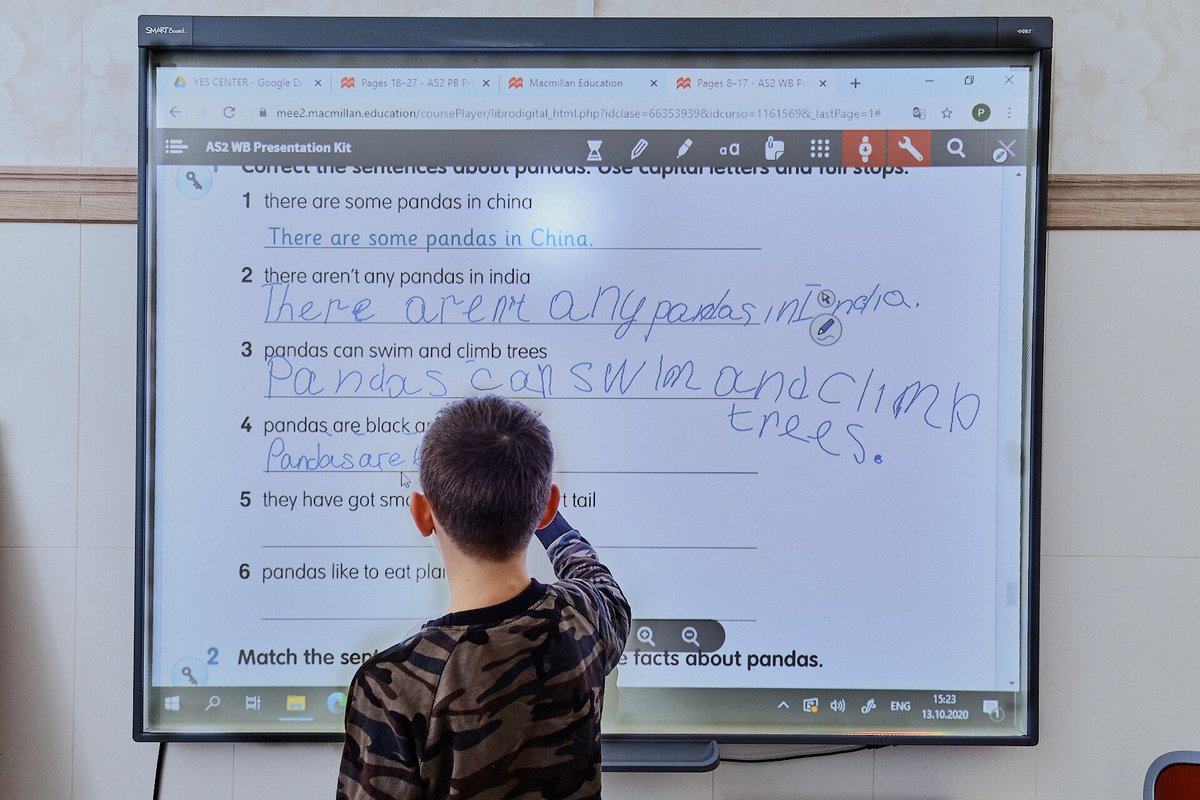 SMART Board
YES CENTER - Google D
Pages 18-27 - AS2 PB P
Macmillan Education
Pages 8-17 - AS2 WB Pr
mee2.macmillan.education/coursePlayer/librodigital_html.php?idclase=66353939&idcurso=1161569&_lastPage=1#
P
AS2 WB Presentation Kit
aa
Correct the sentences about pandas. Use capital letters and full stops.
1 there are some pandas in china
There are some pandas in China.
2 there aren't any pandas in india
There aren't any pandas in India.
3 pandas can swim and climb trees
Pandas can swim and climb
trees.
4 pandas are black
Pandas are
5 they have got t tail
6 pandas like to eat
2 Match the facts about pandas.
ENG
15:23
13.10.2020
1